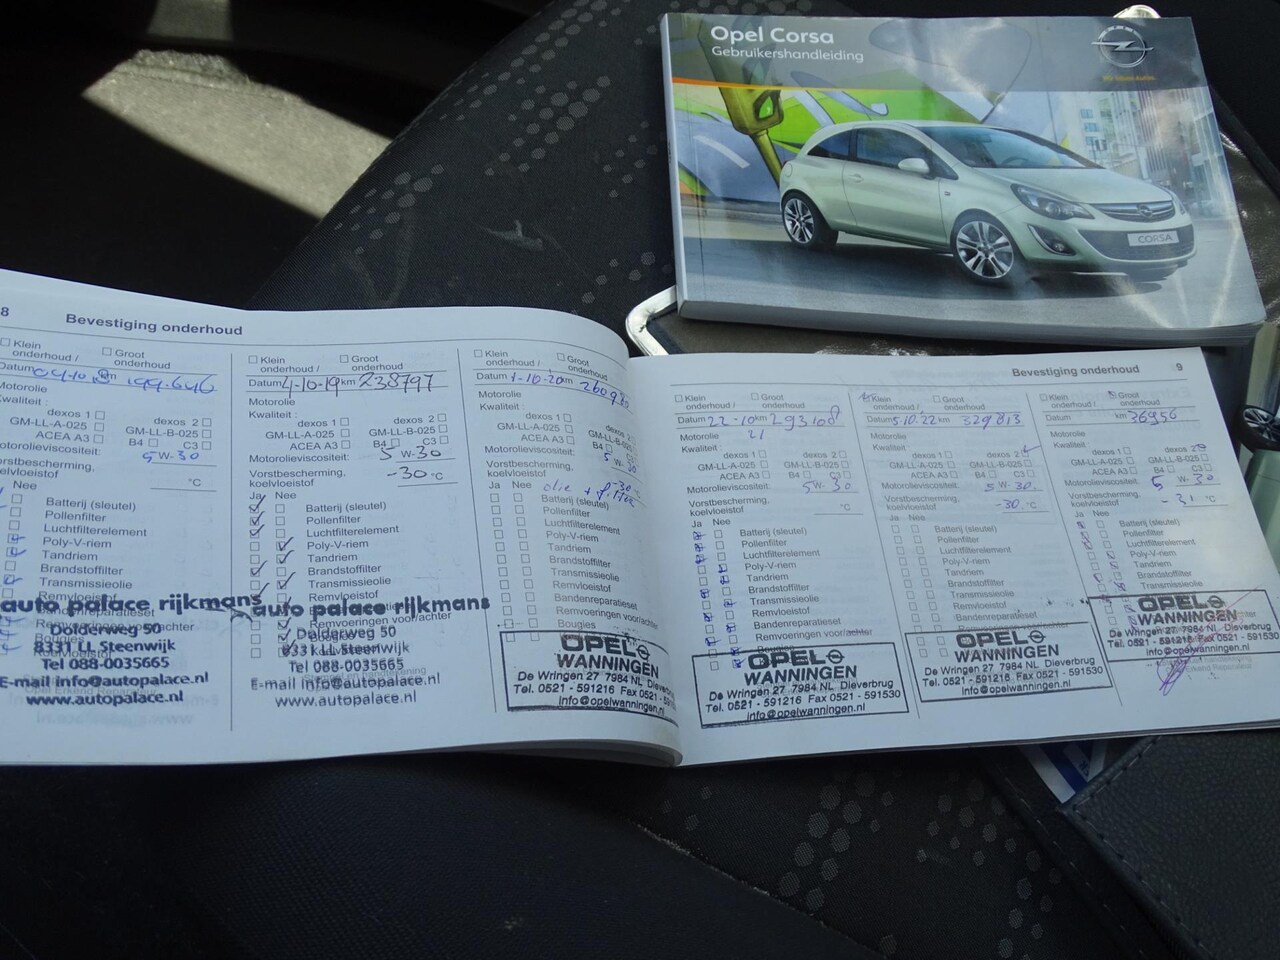 Opel Corsa
Gebruikershandleiding
Wir leben Autos.
CORSA
8
Bevestiging onderhoud
Klein onderhoud /
Groot onderhoud
Datum 04-10-18 km 199.646
Motorolie
Kwaliteit :
dexos 1
dexos 2
GM-LL-A-025
GM-LL-B-025
ACEA A3
B4
C3
Motorolieviscositeit: 5 W-30
Vorstbescherming, koelvloeistof
°C
Nee
Batterij (sleutel)
Pollenfilter
Luchtfilterelement
Poly-V-riem
Tandriem
Brandstoffilter
Transmissieolie
Remvloeistof
Bandenreparatieset
Remvoeringen voor/achter
Bougies
auto palace rijkmans
Dolderweg 50
8331 LL Steenwijk
Tel 088-0035665
E-mail info@autopalace.nl
www.autopalace.nl
Klein onderhoud /
Groot onderhoud
Datum 4-10-19 km 238797
Motorolie
Kwaliteit :
dexos 1
dexos 2
GM-LL-A-025
GM-LL-B-025
ACEA A3
B4
C3
Motorolieviscositeit: 5 W-30
Vorstbescherming, koelvloeistof
-30 °C
Ja Nee
Batterij (sleutel)
Pollenfilter
Luchtfilterelement
Poly-V-riem
Tandriem
Brandstoffilter
Transmissieolie
Remvloeistof
Remvoeringen voor/achter
Bougies
auto palace rijkmans
Dolderweg 50
8331 LL Steenwijk
Tel 088-0035665
E-mail info@autopalace.nl
www.autopalace.nl
Klein onderhoud /
Groot onderhoud
Datum 1-10-20 km 260930
Motorolie
Kwaliteit :
dexos 1
dexos 2
GM-LL-A-025
GM-LL-B-025
ACEA A3
B4
C3
Motorolieviscositeit: 5 W-30
Vorstbescherming, koelvloeistof
-30 °C
olie + filter
Ja Nee
Batterij (sleutel)
Pollenfilter
Luchtfilterelement
Poly-V-riem
Tandriem
Brandstoffilter
Transmissieolie
Remvloeistof
Bandenreparatieset
Remvoeringen voor/achter
Bougies
OPEL
WANNINGEN
De Wringen 27 7984 NL Dieverbrug
Tel. 0521 - 591216 Fax 0521 - 591530
info@opelwanningen.nl
Bevestiging onderhoud
9
Klein onderhoud /
Groot onderhoud
Datum 22-10 km 293108
21
Motorolie
Kwaliteit :
dexos 1
dexos 2
GM-LL-A-025
GM-LL-B-025
ACEA A3
B4
C3
Motorolieviscositeit: 5 W-30
Vorstbescherming, koelvloeistof
°C
Ja Nee
Batterij (sleutel)
Pollenfilter
Luchtfilterelement
Poly-V-riem
Tandriem
Brandstoffilter
Transmissieolie
Remvloeistof
Bandenreparatieset
Remvoeringen voor/achter
Bougies
OPEL
WANNINGEN
De Wringen 27 7984 NL Dieverbrug
Tel. 0521 - 591216 Fax 0521 - 591530
info@opelwanningen.nl
Klein onderhoud /
Groot onderhoud
Datum 5.10.22 km 329813
Motorolie
Kwaliteit :
dexos 1
dexos 2
GM-LL-A-025
GM-LL-B-025
ACEA A3
B4
C3
Motorolieviscositeit: 5 W-30.
Vorstbescherming, koelvloeistof
-30 °C
Ja Nee
Batterij (sleutel)
Pollenfilter
Luchtfilterelement
Poly-V-riem
Tandriem
Brandstoffilter
Transmissieolie
Remvloeistof
Bandenreparatieset
OPEL
WANNINGEN
De Wringen 27 7984 NL Dieverbrug
Tel. 0521 - 591216 Fax 0521 - 591530
info@opelwanningen.nl
Klein onderhoud /
Groot onderhoud
Datum
km 36956
Motorolie
Kwaliteit :
dexos 1
dexos 2
GM-LL-A-025
GM-LL-B-025
ACEA A3
B4
C3
Motorolieviscositeit: 5 W-30
Vorstbescherming, koelvloeistof
-31 °C
Ja Nee
Batterij (sleutel)
Pollenfilter
Luchtfilterelement
Poly-V-riem
Tandriem
Brandstoffilter
Transmissieolie
OPEL
WANNINGEN
De Wringen 27 7984 NL Dieverbrug
Tel. 0521 - 591216 Fax 0521 - 591530
info@opelwanningen.nl